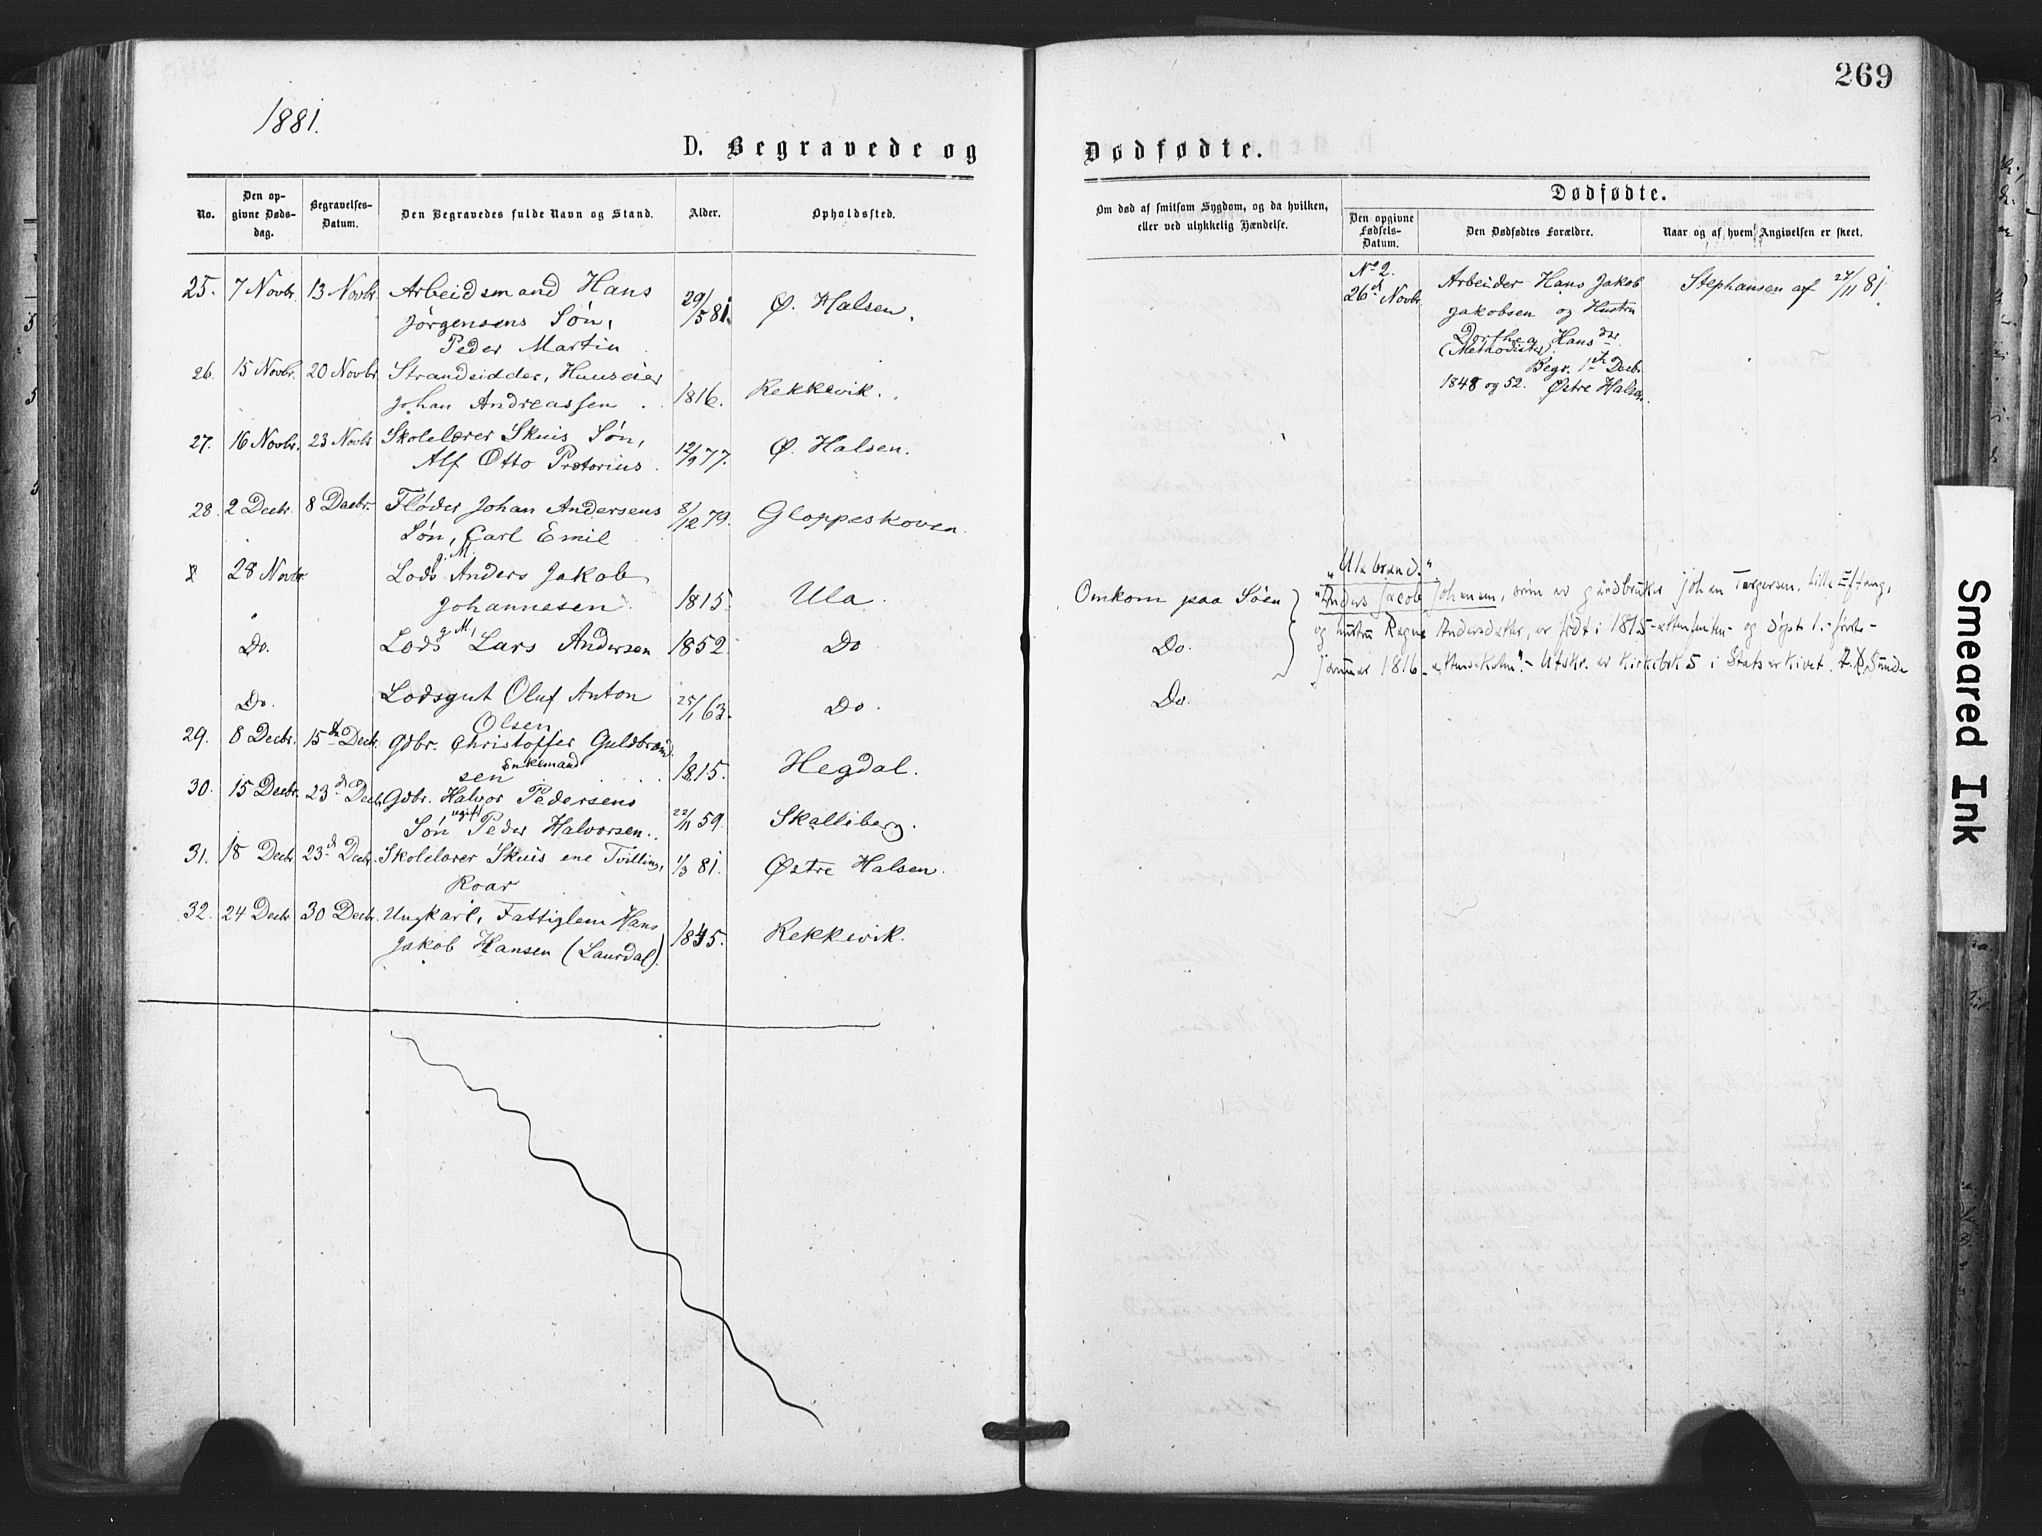 269
1881.
D. Begravede og
Dødfødte.
No.
Den op-
givne Døds-
dag.
Begravelses-
Datum.
Den Begravedes fulde Navn og Stand.
Alder.
Opholdssted.
Om død af smitsom Sygdom, og da hvilken,
eller ved ulykkelig Hændelse.
Dødfødte.
Den opgivne
Fødsels-
Datum.
Den Dødfødtes Forældre.
Naar og af hvem Angivelsen er skeet.
25. 7 Novbr. 13 Novbr. Arbeidsmand Hans
Jörgensens Sön,
Peder Martin
29/5 81. Ø. Halsen.
26. 15 Novbr. 20 Novbr. Strandsidder, Huuseier
Johan Andreassen
1816. Rekkevik.
27. 16 Novbr. 23 Novbr. Skolelærer Skuis Sön,
Alf Otto Pretorius.
12/9 77. Ø. Halsen.
28. 2 Decbr. 8 Decbr. Fløder Johan Andersens
Sön, Carl Emil
8/12 79. Gloppeskoven
28 Novbr. Lods g. M. Anders Jakob
Johannesen.
1815. Ula.
Omkom paa Søen
Do. Lods g. M. Lars Andersen 1852 Do
Do.
Do. Lodsgut Oluf Anton
Olsen
25/11 63. Do.
Do.
29. 8 Decbr. 15de Decbr. Gdbr. Christoffer Guldbrand
sen Enkemand
1815. Hegdal.
30. 15 Decbr. 23de Decbr. Gdbr. Halvor Pedersens
Sön ugift Peder Halvorsen.
22/11 59. Skalleberg.
31. 18 Decbr. 23de Decbr. Skolelærer Skuis ene Tvilling,
Roar
1/3 81. Østre Halsen.
32. 24 Decbr. 30 Decbr. Ungkarl, Fattiglem Hans
Jakob Hansen (Laurdal).
1845. Rekkevik.
No 2.
26de Novbr.
Arbeider Hans Jakob
Jakobsen og Hustru
Dorthea Hansdr
(Methodister).
Begr. 1ste Decbr.
1848 og 52. Østre Halsen.
Stephansen af 27/11 81.
"Ulabrand."
"Anders Jacob Johansen, sönn av gårdbruker Johan Torgersen, Lille Eftang,
og hustru Ragne Andersdatter, er födt i 1815 - og döpt 1. förste -
januar 1816 - Utskr. av Kirkebok 5 i Statsarkivet. Sunde
Smeared Ink